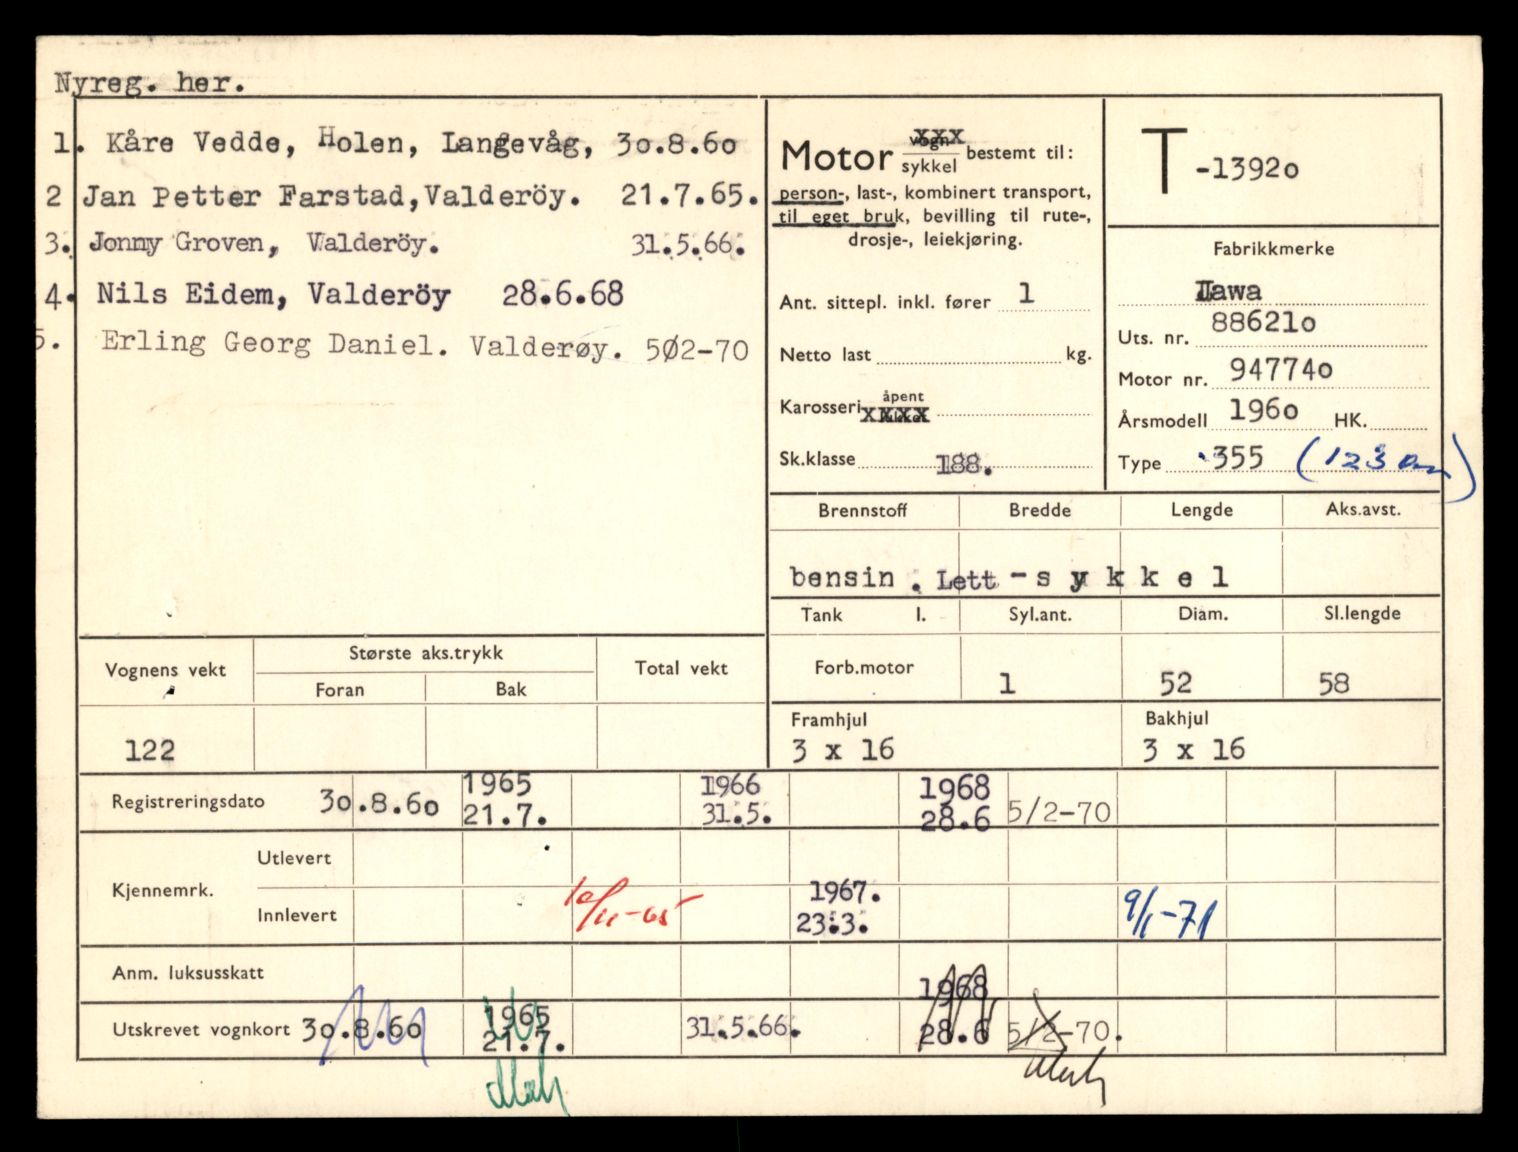 Nyreg. her.
1. Kåre Vedde, Holen, Langevåg, 3o.8.6o
2 Jan Petter Farstad, Valderöy. 21.7.65.
3. Jonny Groven, Valderöy. 31.5.66.
4. Nils Eidem, Valderöy 28.6.68
5. Erling Georg Daniel. Valderøy. 5Ø2-70
Motor vogn xxx
sykkel bestemt til:
person-, last-, kombinert transport,
til eget bruk, bevilling til rute-,
drosje-, leiekjøring.
Ant. sittepl. inkl. fører 1
Netto last kg.
Karosseri åpent
xxxx
Sk.klasse 188.
T -1392o
Fabrikkmerke
Jawa
Uts. nr. 88621o
Motor nr. 94774o
Årsmodell 196o HK.
Type 355
Brennstoff Bredde Lengde Aks.avst.
bensin. Lett-sykkel
Tank l. Syl.ant. Diam. Sl.lengde
Forb.motor 1 52 58
Framhjul Bakhjul
3 x 16 3 x 16
Vognens vekt Største aks.trykk Total vekt
Foran Bak
122
Registreringsdato 3o.8.6o 1965 21.7. 1966 31.5. 1968 28.6 5/2-70
Kjennemrk. Utlevert
Innlevert 10/11-65 1967. 23.3. 9/1-71
Anm. luksusskatt
Utskrevet vognkort 3o.8.6o 1965 21.7. 31.5.66. 1968 28.6 5/2-70.